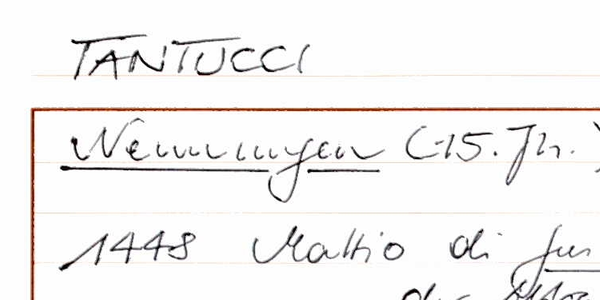 TANTUCCI
Nennungen (15. Jh.)
1448 Mattio di